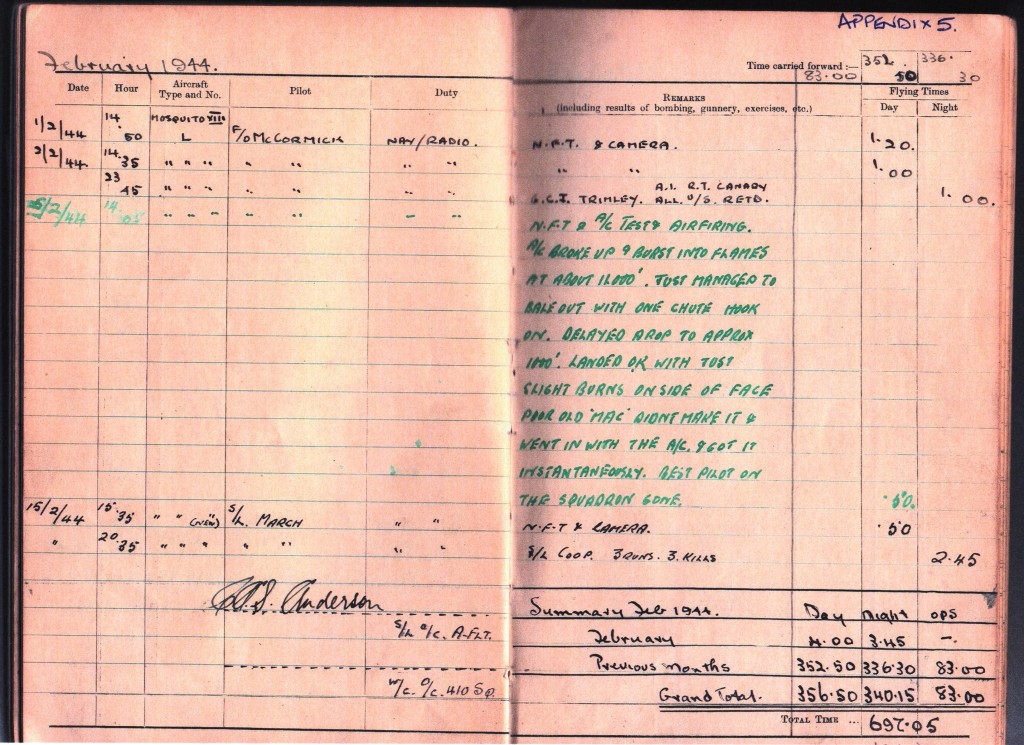 APPENDIX 5.
February 1944.
Time carried forward :— 83.00 352.50 336.30
Date Hour Aircraft Type and No. Pilot Duty REMARKS (including results of bombing, gunnery, exercises, etc.) Flying Times Day Night
1/2/44 14 50 MOSQUITO XIII L F/O McCORMICK NAV/RADIO. N.F.T. & CAMERA. 1.20.
2/2/44 14 35 " " " " " " " " " 1.00
23 45 " " " " " " " G.C.I TRIMLEY. A.I. R.T. CANARY ALL U/S. RETD. 1.00.
5/2/44 14 05 " " " " " " " N.F.T & A/C TEST & AIRFIRING.
A/C BROKE UP & BURST INTO FLAMES
AT ABOUT 11,000'. JUST MANAGED TO
BALE OUT WITH ONE CHUTE HOOK
ON. DELAYED DROP TO APPROX
1000'. LANDED OK WITH JUST
SLIGHT BURNS ON SIDE OF FACE
POOR OLD 'MAC' DIDNT MAKE IT &
WENT IN WITH THE A/C. & GOT IT
INSTANTANEOUSLY. BEST PILOT ON
THE SQUADRON GONE. .50.
15/2/44 15 35 " " " (NEW) S/L. MARCH " " N.F.T & CAMERA. .50
" 20 35 " " " " " " " S/L COOP. 3 RUNS. 3. KILLS 2.45
Anderson
S/L O/C. A-FLT.
W/C. O/C. 410 SQ.
Summary Feb 1944. Day Night OPS
February 4.00 3.45 —.
Previous months 352.50 336.30 83.00
Grand Total. 356.50 340.15 83.00
TOTAL TIME ... 697.05